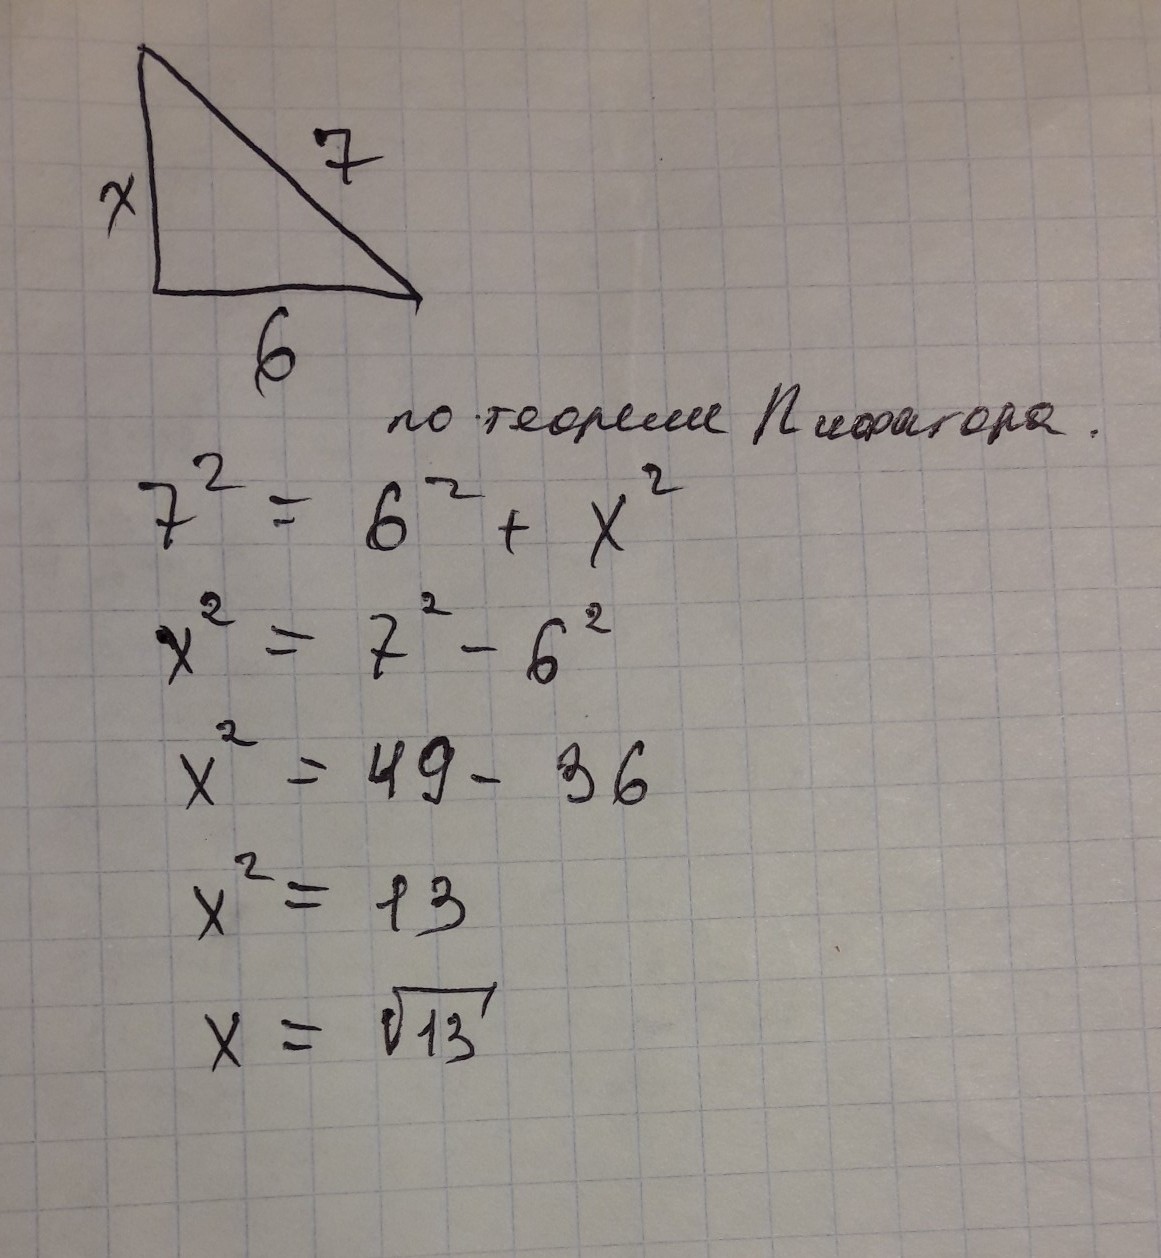 x
7
6
по теореме Пифагора.
7² = 6² + x²
x² = 7² - 6²
x² = 49 - 36
x² = 13
x = √13